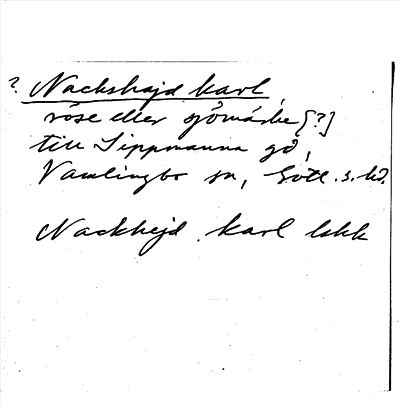 ? Nackshajd karl,
röse eller gömärke [?]
till Sippmanna gd,
Vamlingbo sn, Gotl. s. hd.
Nackhejd karl lskk